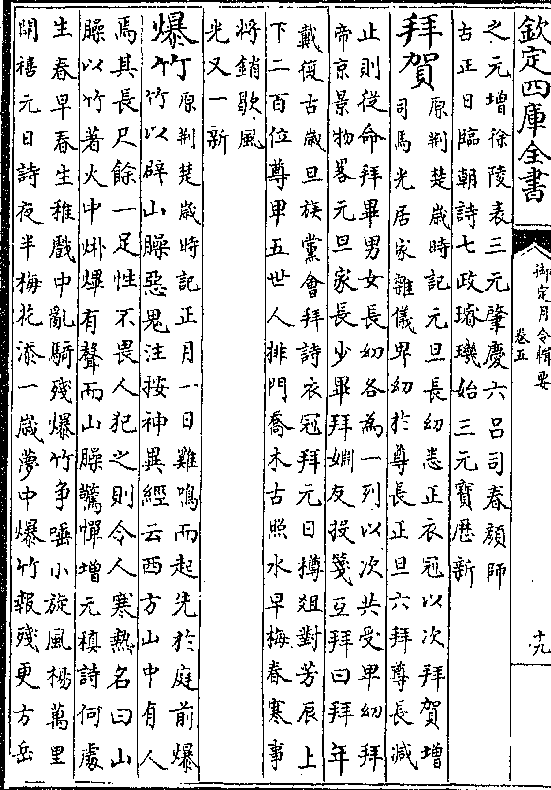 欽定四庫全書
御定月令輯要
卷五
十九
之元增徐陵表三元肇慶六呂司春顔師
古正日臨朝詩七政璿璣始三元寶歴新
拜賀
原荆楚歲時記元旦長幼悉正衣冠以次拜賀增
司馬光居家雜儀卑幼於尊長正旦六拜尊長減
止則從命拜畢男女長幼各為一列以次共受卑幼拜
帝京景物畧元旦家長少畢拜姻友投箋互拜曰拜年
戴復古歲旦族黨會拜詩衣冠拜元日樽爼對芳辰上
下二百位尊卑五世人排門喬木古照水早梅春寒事
將銷歇風
光又一新
爆竹
原荆楚歲時記正月一日雞鳴而起先於庭前爆
竹以辟山臊惡鬼注按神異經云西方山中有人
焉其長尺餘一足性不畏人犯之則令人寒熱名曰山
臊以竹著火中烞熚有聲而山臊驚憚增元稹詩何處
生春早春生稚戲中亂騎殘爆竹爭唾小旋風楊萬里
開禧元日詩夜半梅花添一歲夢中爆竹報殘更方岳